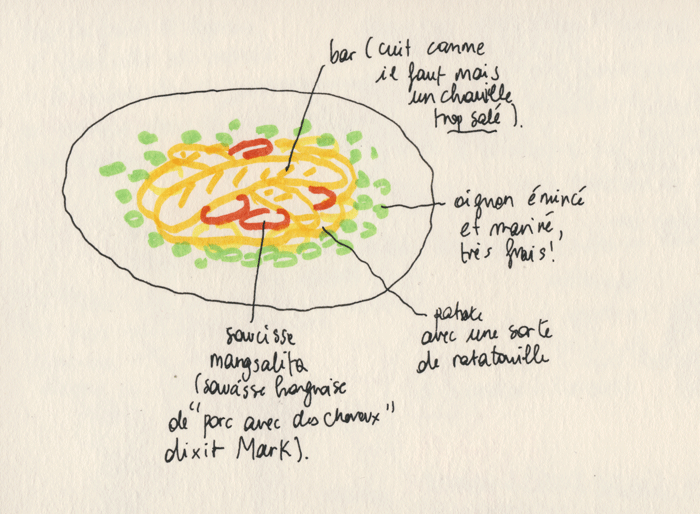 bar (cuit comme
il faut mais
un chouille
trop salé).
oignon émincé
et mariné,
très frais!
patate
avec une sorte
de ratatouille
saucisse
mangsalita
(saucisse hongroise
de "porc avec des cheveux"
dixit Mark).